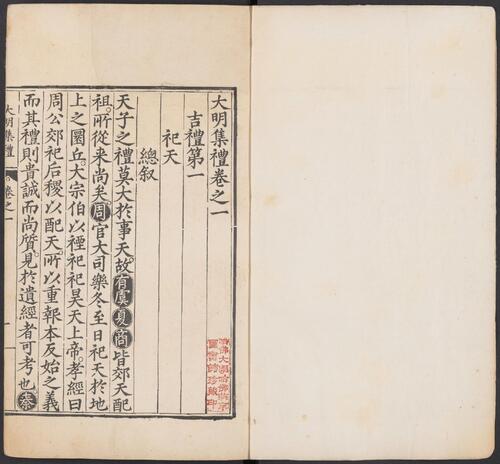 大明集禮卷之一
吉禮第一
祀天
總叙
天子之禮莫大於事天故有虞夏商皆郊天配
祖所從来尚矣周官大司樂冬至日祀天於地
上之圜丘大宗伯以禋祀祀昊天上帝孝經曰
周公郊祀后稷以配天所以重報本反始之義
而其禮則貴誠而尚質見於遺經者可考也秦
大明集禮 卷之一 一